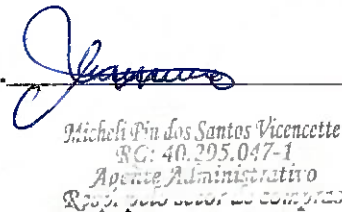 Micheli Pin dos Santos Vicencette
RG: 40.295.047-1
Agente Administrativo
Resp. pelo setor de compras